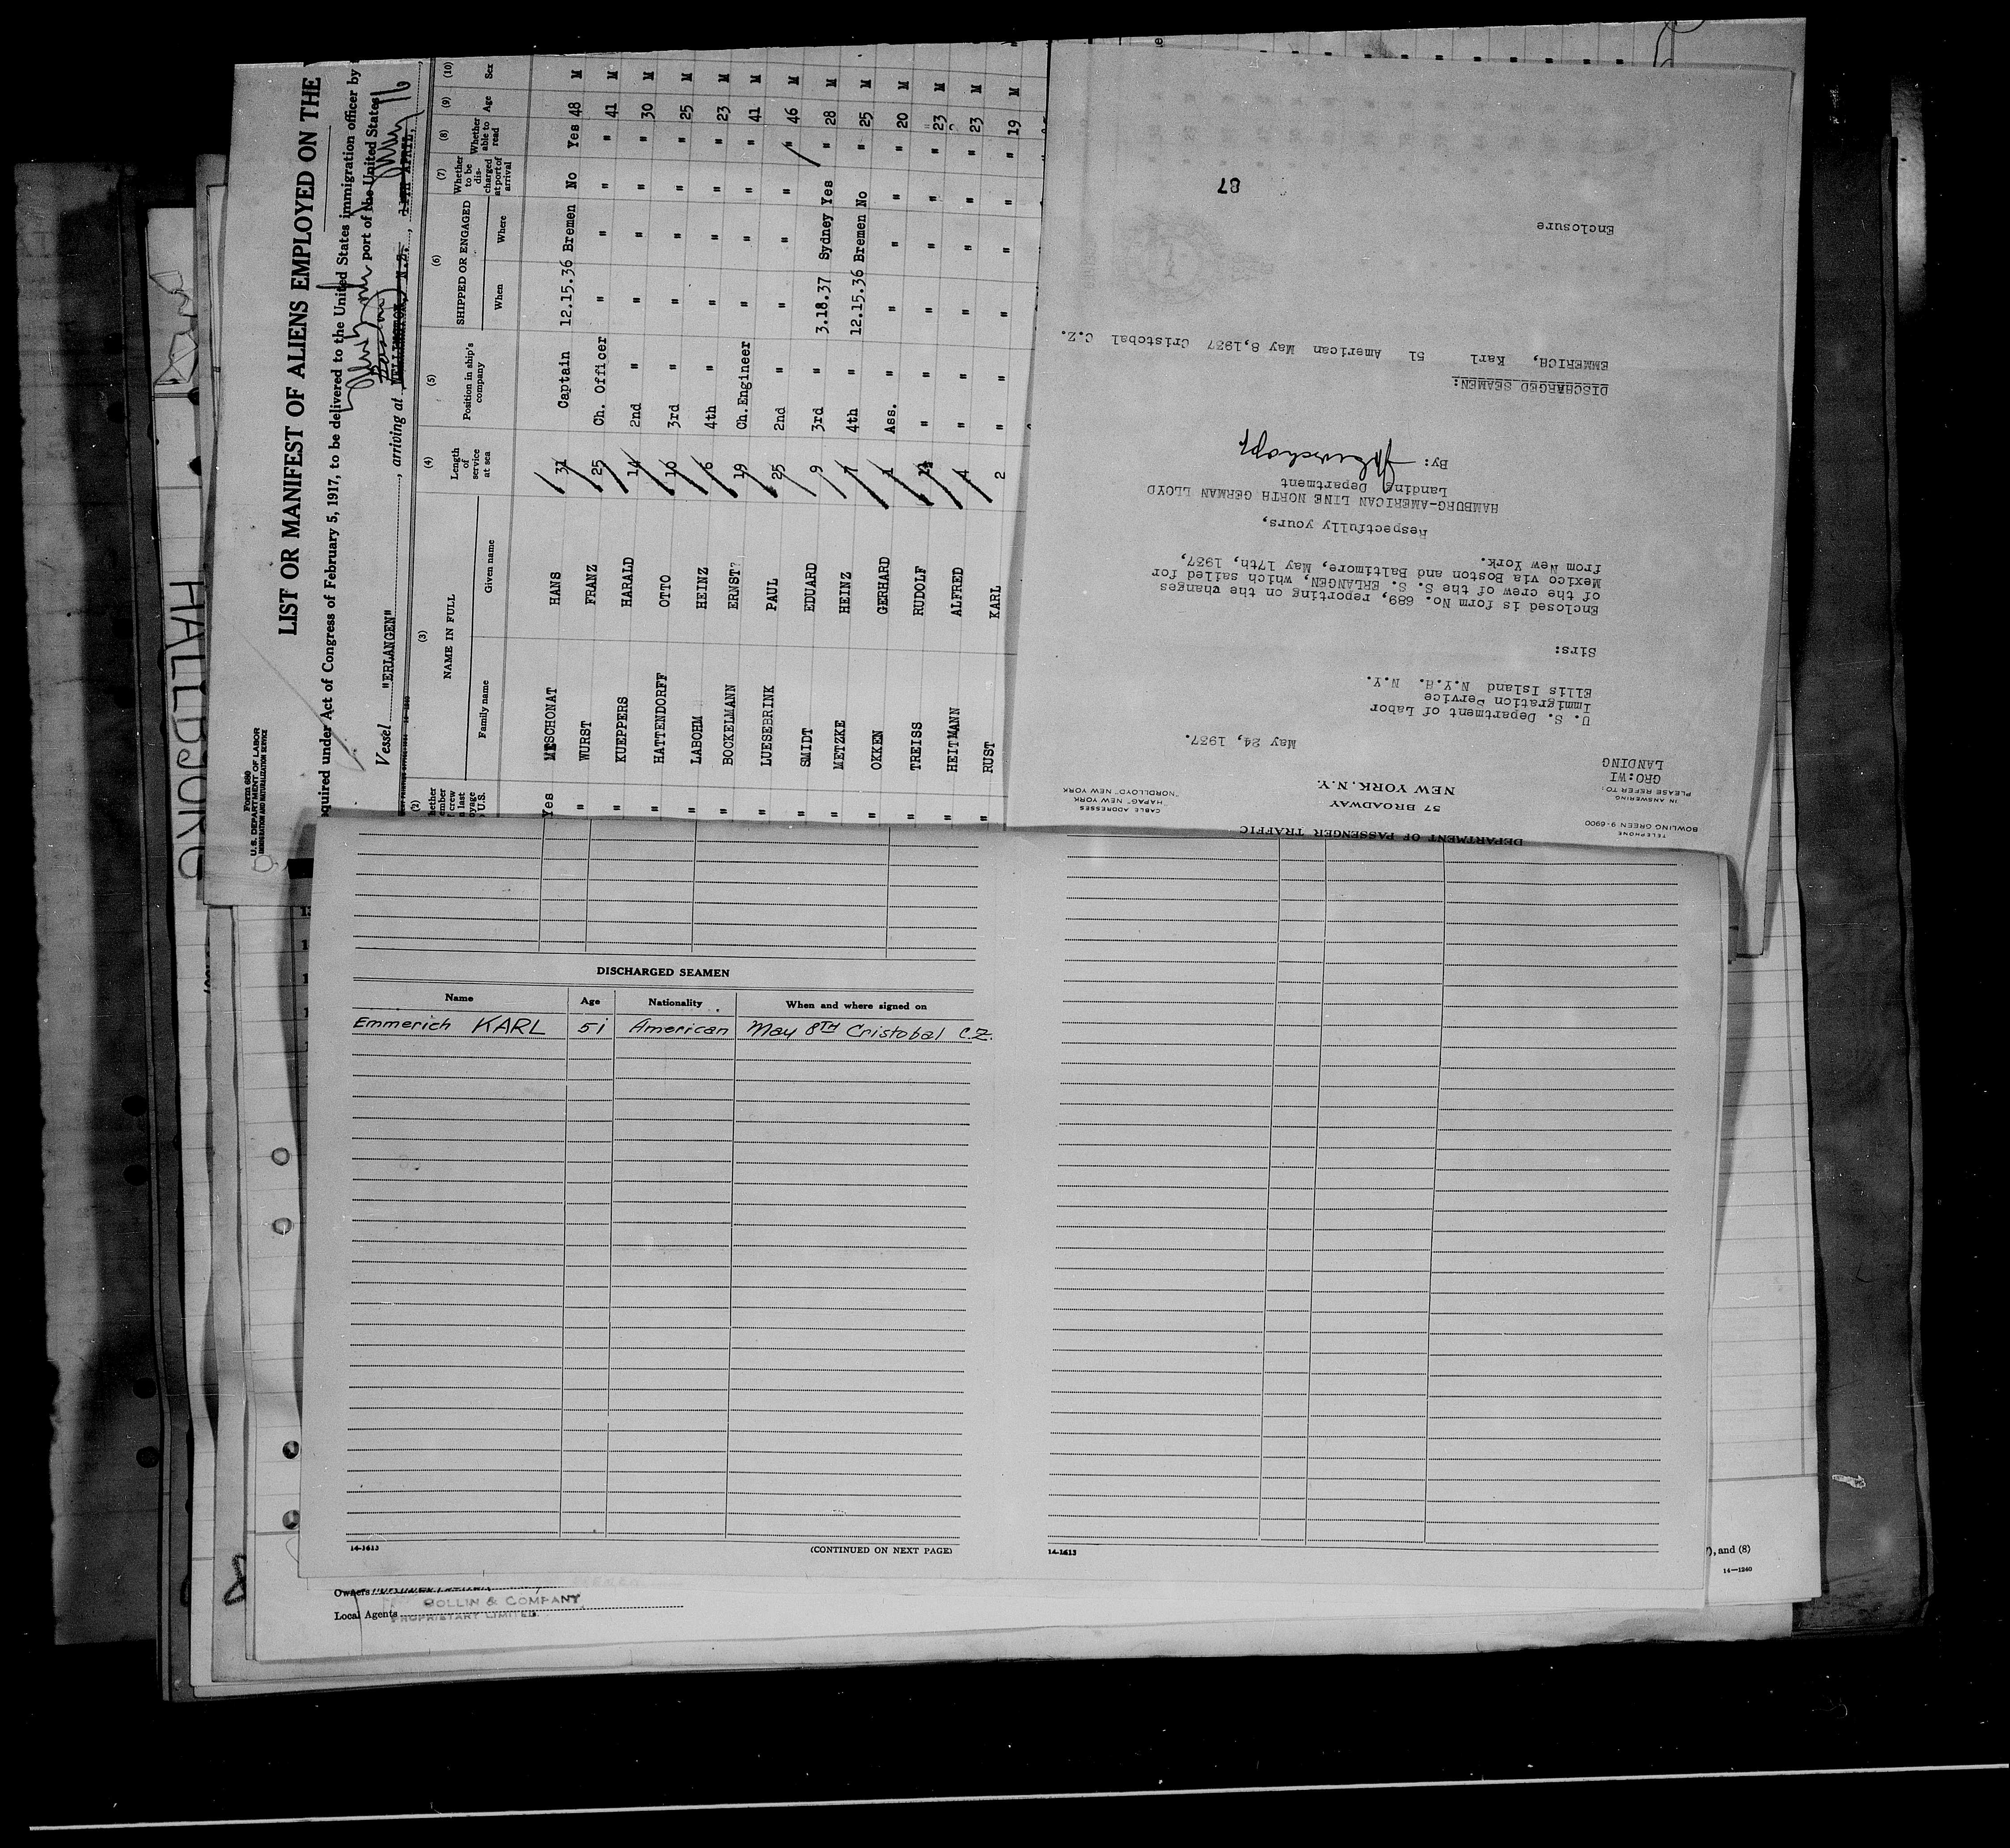 HALLBJORG
Form 680
U. S. DEPARTMENT OF LABOR
IMMIGRATION AND NATURALIZATION SERVICE
LIST OR MANIFEST OF ALIENS EMPLOYED ON THE
quired under Act of Congress of February 5, 1917, to be delivered to the United States immigration officer by
port of the United States
Vessel "ERLANGEN", arriving at WELLINGTON, N.Z.
(2) (3) (4) (5) (6) (7) (8) (9) (10)
NAME IN FULL
Family name Given name
Length of service at sea
Position in ship's company
SHIPPED OR ENGAGED
When Where
Whether to be discharged at port of arrival
Whether able to read
Age
Sex
Yes MESCHONAT HANS 31 Captain 12.15.36 Bremen No Yes 48 M
" WURST FRANZ 25 Ch. Officer " " " " 41 M
" KUEPPERS HARALD 14 2nd " " " " " 30 M
" HATTENDORFF OTTO 10 3rd " " " " " 25 M
" LABOHM HEINZ 6 4th " " " " " 23 M
" BOCKELMANN ERNST 19 Ch.Engineer " " " " 41 M
" LUESEBRINK PAUL 25 2nd " " " " " 46 M
" SMIDT EDUARD 9 3rd " 3.18.37 Sydney Yes " 28 M
" METZKE HEINZ 4th " 12.15.36 Bremen No " 25 M
" OKKEN GERHARD 1 Ass. " " " " " 20 M
" TREISS RUDOLF " " " " " " 23 M
" HEITMANN ALFRED 4 " " " " " " 23 M
" RUST KARL 2 " " " " " " 19 M
DEPARTMENT OF PASSENGER TRAFFIC
57 BROADWAY
NEW YORK, N.Y.
TELEPHONE
BOWLING GREEN 9-6900
CABLE ADDRESSES
"HAPAG" NEW YORK
"NORDLLOYD" NEW YORK
IN ANSWERING
PLEASE REFER TO:
GRO:WI
LANDING
May 24, 1937.
U. S. Department of Labor
Immigration Service
Ellis Island N.Y.H. N.Y.
Sirs:
Enclosed is form No. 689, reporting on the changes
of the crew of the S. S. ERLANGEN, which sailed for
Mexico via Boston and Baltimore, May 17th, 1937,
from New York.
Respectfully yours,
HAMBURG-AMERICAN LINE NORTH GERMAN LLOYD
Landing Department
By:
DISCHARGED SEAMEN:
EMMERICH, Karl 51 American May 8,1937 Cristobal C.Z.
Enclosure
87
DISCHARGED SEAMEN
Name Age Nationality When and where signed on
Emmerich KARL 51 American May 8TH Cristobal C.Z.
14-1613
(CONTINUED ON NEXT PAGE)
14-1613
), and (8)
14-1240
Owners
Local Agents
GOLLIN & COMPANY
PROPRIETARY LIMITED